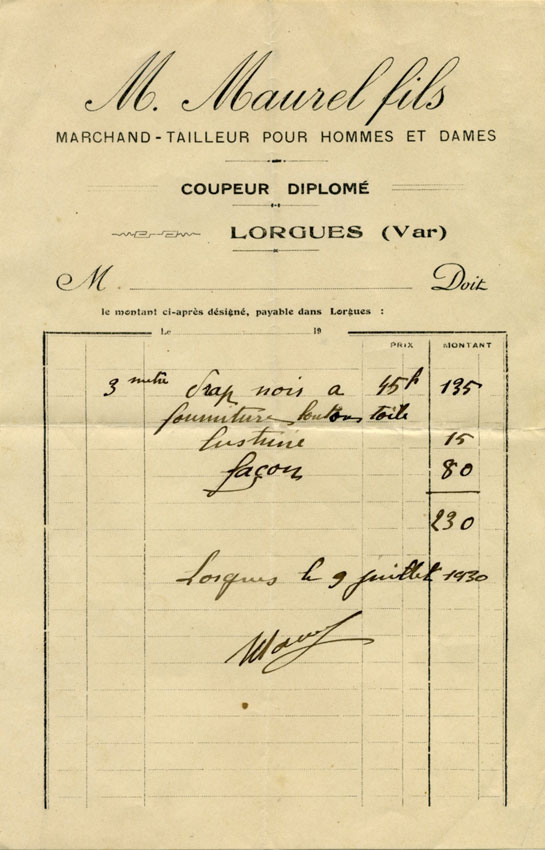 M. Maurel fils
MARCHAND-TAILLEUR POUR HOMMES ET DAMES
COUPEUR DIPLOMÉ
LORGUES (Var)
M. Doit
le montant ci-après désigné, payable dans Lorgues :
Le 19
PRIX MONTANT
3 metre drap noir a 45f 135
fourniture boutons toile
lustrine 15
façon 80
230
Lorgues le 9 juillet 1930
Maurel